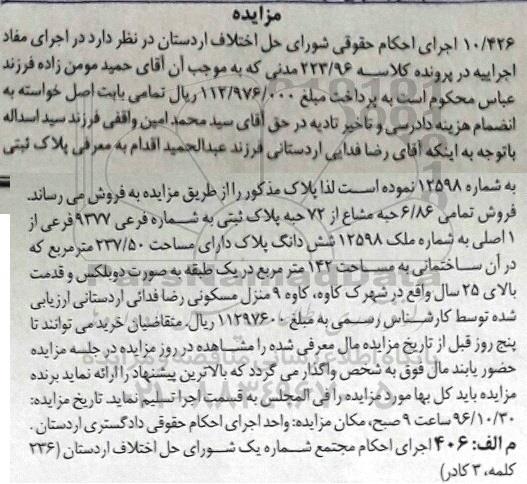 مزایده
۱۰/۴۲۶ اجرای احکام حقوقی شورای حل اختلاف اردستان در نظر دارد در اجرای مفاد
اجراییه در پرونده کلاسه ۲۲۳/۹۶ مدنی که به موجب آن آقای حمید مومن زاده فرزند
عباس محکوم است به پرداخت مبلغ ۱۱۲/۹۷۶/۰۰۰ ریال تمامی بابت اصل خواسته به
انضمام هزینه دادرسی و تاخیر تادیه در حق آقای سید محمد امین واقفی فرزند سید اسداله
باتوجه به اینکه آقای رضا فدایی اردستانی فرزند عبدالحمید اقدام به معرفی پلاک ثبتی
به شماره ۱۲۵۹۸ نموده است لذا پلاک مذکور را از طریق مزایده به فروش می رساند.
فروش تمامی ۶/۸۶ حبه مشاع از ۷۲ حبه پلاک ثبتی به شماره فرعی ۹۳۷۷ فرعی از
۱ اصلی به شماره ملک ۱۲۵۹۸ شش دانگ پلاک دارای مساحت ۲۳۷/۵۰ مترمربع که
در آن ساختمانی به مساحت ۱۴۲ متر مربع در یک طبقه به صورت دوبلکس و قدمت
بالای ۲۵ سال واقع در شهرک کاوه، کاوه ۹ منزل مسکونی رضا فدائی اردستانی ارزیابی
شده توسط کارشناس رسمی به مبلغ ۱۱۲۹۷۶۰۰۰ ریال. متقاضیان خرید می توانند تا
پنج روز قبل از تاریخ مزایده مال معرفی شده را مشاهده در روز مزایده در جلسه مزایده
حضور یابند مال فوق به شخص واگذار می گردد که بالاترین پیشنهاد را ارائه نماید برنده
مزایده باید کل بها مورد مزایده را فی المجلس به قسمت اجرا تسلیم نماید. تاریخ مزایده:
۹۶/۱۰/۳۰ ساعت ۹ صبح، مکان مزایده: واحد اجرای احکام حقوقی دادگستری اردستان.
م الف: ۴۰۶ اجرای احکام مجتمع شماره یک شورای حل اختلاف اردستان (۲۳۶
کلمه، ۳ کادر)